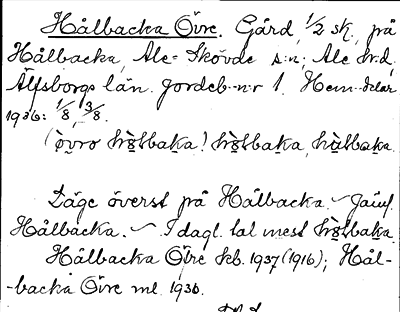 Hålbacka Övre. Gård, 1/2 sk, på
Hålbacka, Ale-Skövde s:n; Ale h:d.
Älfsborgs län. Jordeb.-n:r 1. Hem.-delar
1936: 1/8, 3/8.
(òvrə hòlbaka! hòlbaka, hàlbaka.
Läge överst på Hålbacka. – Jämf.
Hålbacka. – I dagl. tal mest hòlbaka.
Hålbacka Övre kb. 1937 (1916); Hål-
-backa Övre ml. 1936.